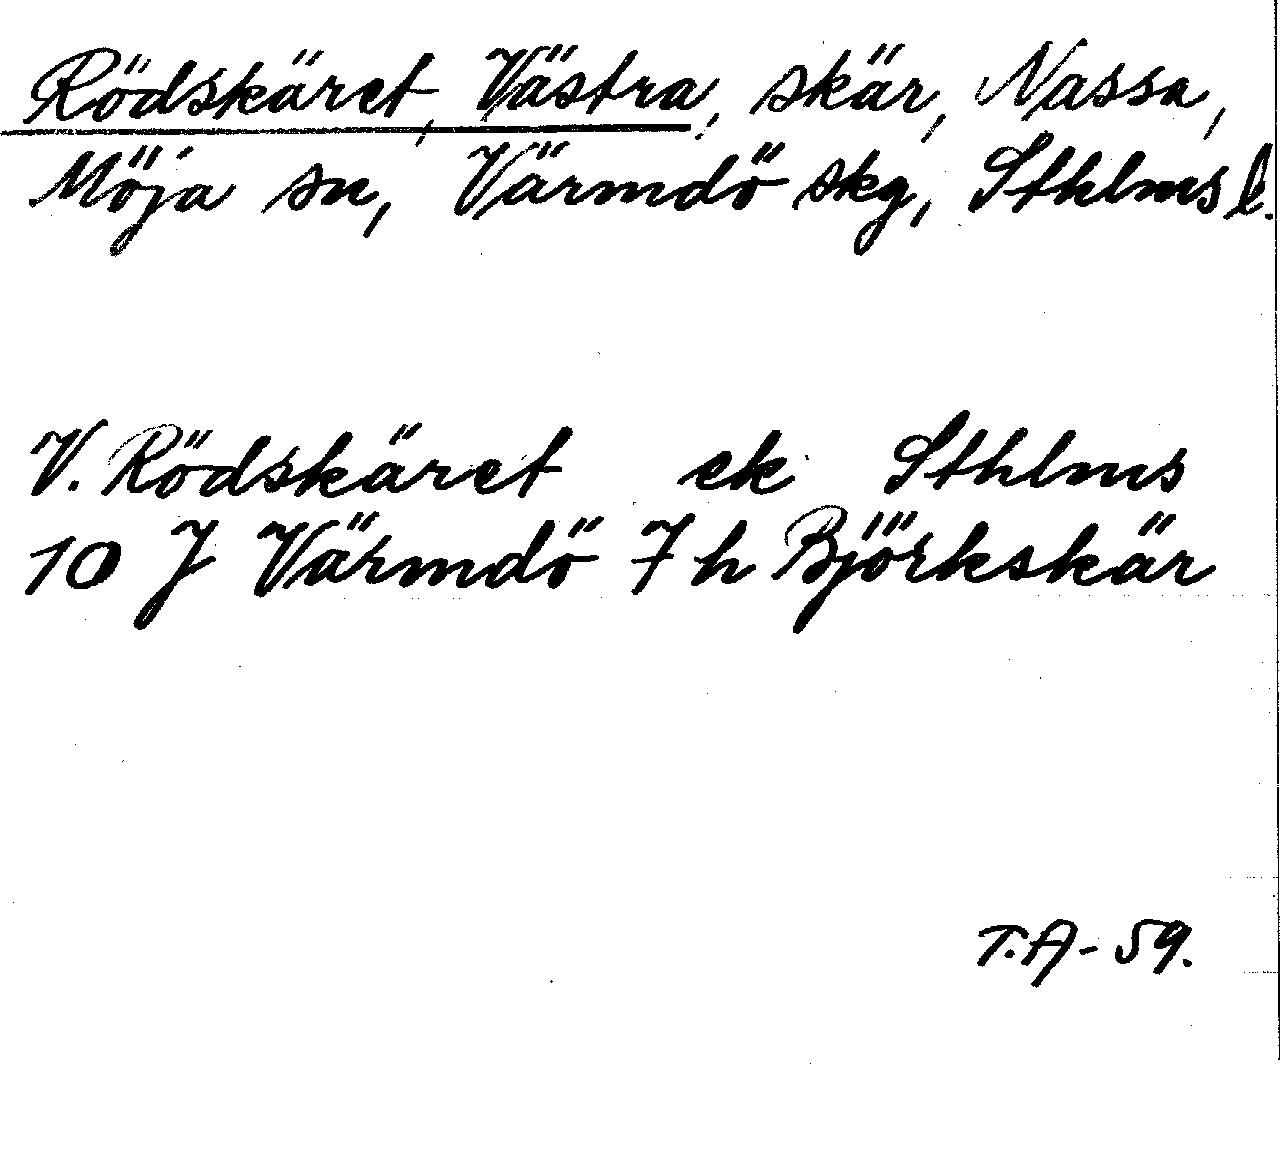 Rödskäret, Västra, skär, Nassa,
Möja sn, Värmdö skg, Sthlms l.
V. Rödskäret ek Sthlms
10 J Värmdö 7 h Björkskär
T.A - 59.